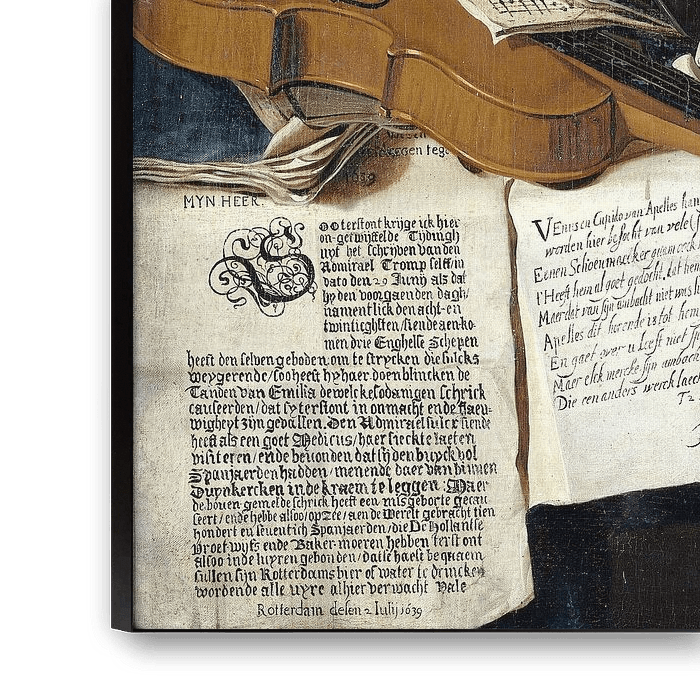 tegen tege
1639
MYN HEER.
SOO terstont krijge ick hier
on-getwijffelde Tijdingh
uyt het schrijven van den
Admirael Tromp selff in
dato den 29 Junij als dat
hy den voorgaenden dagh/
namentlick den acht-en
twinticghsten/siende aen ko-
men drie Enghelse Schepen
heeft den selven geboden om te strycken die sulcks
weygerende/soo heeft hy haer doen blincken de
Tanden van Emilia derwelcke sodanigen schrick
causeerden/dat sy terstont in onmacht ende flaeu-
wigheyt zijn gevallen. Den Admirael sulcx siende
heeft als een goet Medicus/haer sieckte laeten
visiteren/ende bevonden dat sij den buyck vol
Spanjaerden hadden/menende daer van binnen
Duynkercken inde kraem te leggen: Maer
de boven gemelde schrick heeft een misgeborte gecau
seert/ende hebbe alsoo/op Zee/aen de Werelt gebracht tien
hondert en seventich Spanjaerden/die De Hollantse
Vroet wijfs ende Baker-moeren hebben terstont
alsoo inde luyren gebonden/datse haest bequaem
sullen sijn Rotterdams bier of water te drincken
wordende alle uyre alhier verwacht Vale
Rotterdam desen 2 Iulij 1639
VEnus en Cupido van Apelles
worden hier besocht van vele
Eenen Schoenmaecker quam oock
t'Heeft hem al goet gedocht, dat hem
Maer dat van sijn ambocht niet was
Apelles dit hoorende is tot hem
En gaet over u Leest niet
Maer elck mercke sijn ambach
Die een anders werck lacht